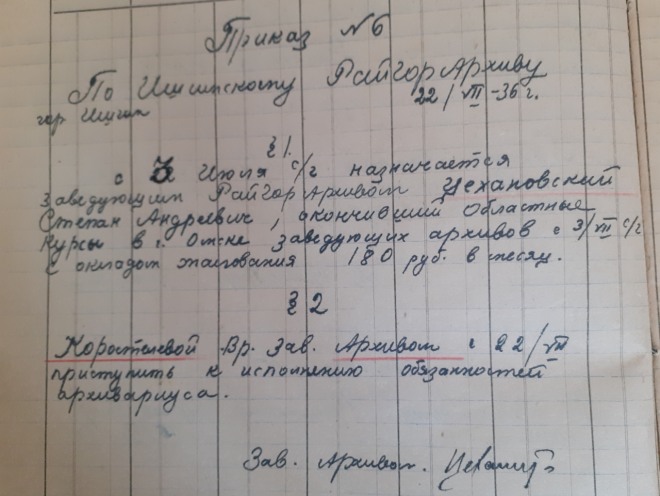 Приказ № 6
По Ишимскому РайгорАрхиву
гор Ишим 22/VII-36 г.
§ 1.
с 3 Июля с/г назначается
Заведующим РайГорАрхивом Цехановский
Степан Андреевич, окончивший Областные
Курсы в г. Омске заведующих архивов с 3/VII с/г
с окладом жалования 180 руб. в месяц.
§ 2
Коростелевой Вр. Зав. Архивом с 22/VII
приступить к исполнению обязанностей
архивариуса.
Зав. Архивом.